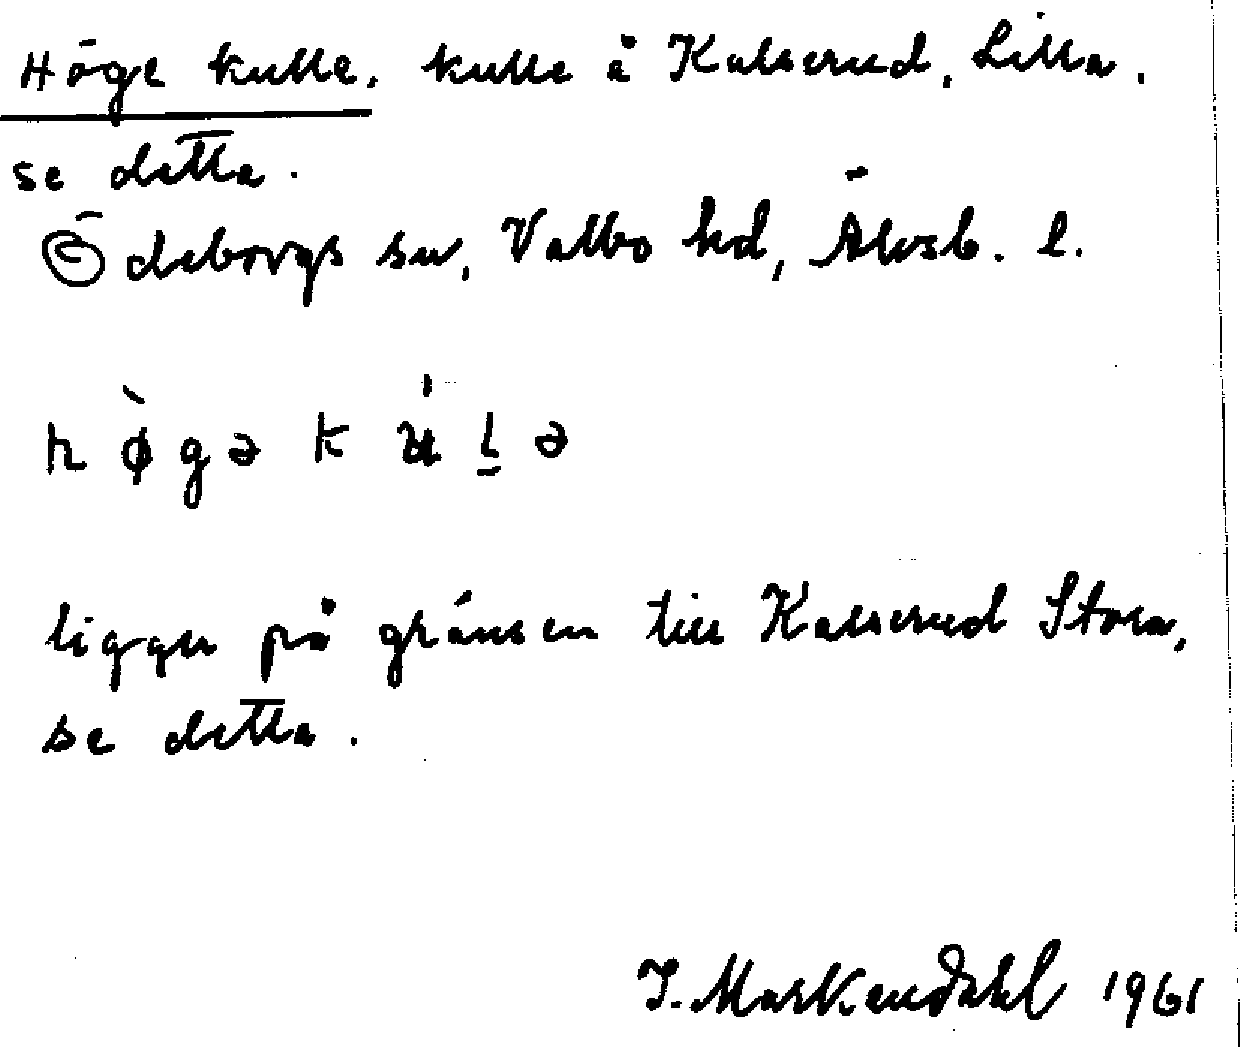 Höge kulle, kulle å Kalserud, Lilla.
se detta.
Ödeborgs sn, Valbo hd, Älvsb. l.
h ø̀ g ə k ʉ́ l̠ ə
ligger på gränsen till Kalserud Stora,
se detta.
I. Markendahl 1961